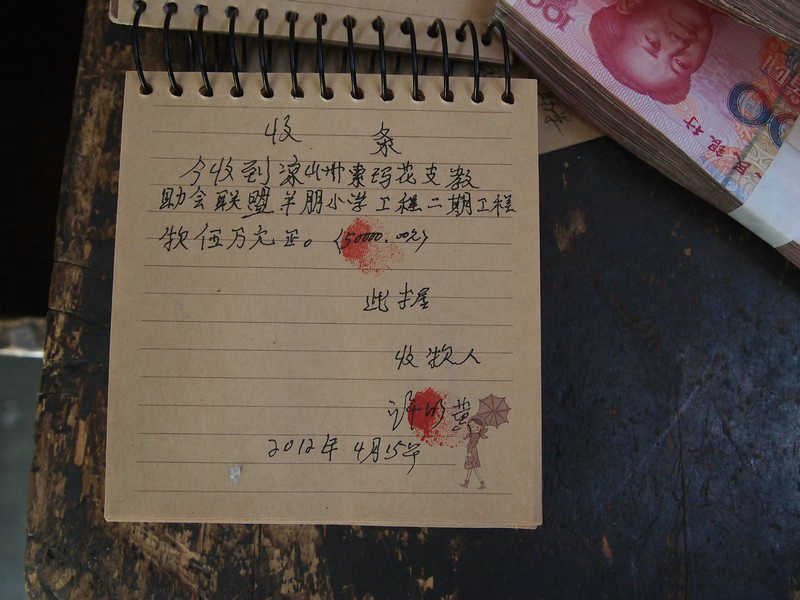 收 条
今收到凉山州索玛花支教
助会联盟羊朋小学工程二期工程
款伍万元正。(50000.00元)
此据
收款人
许
2012年 4月15号
100
民银行